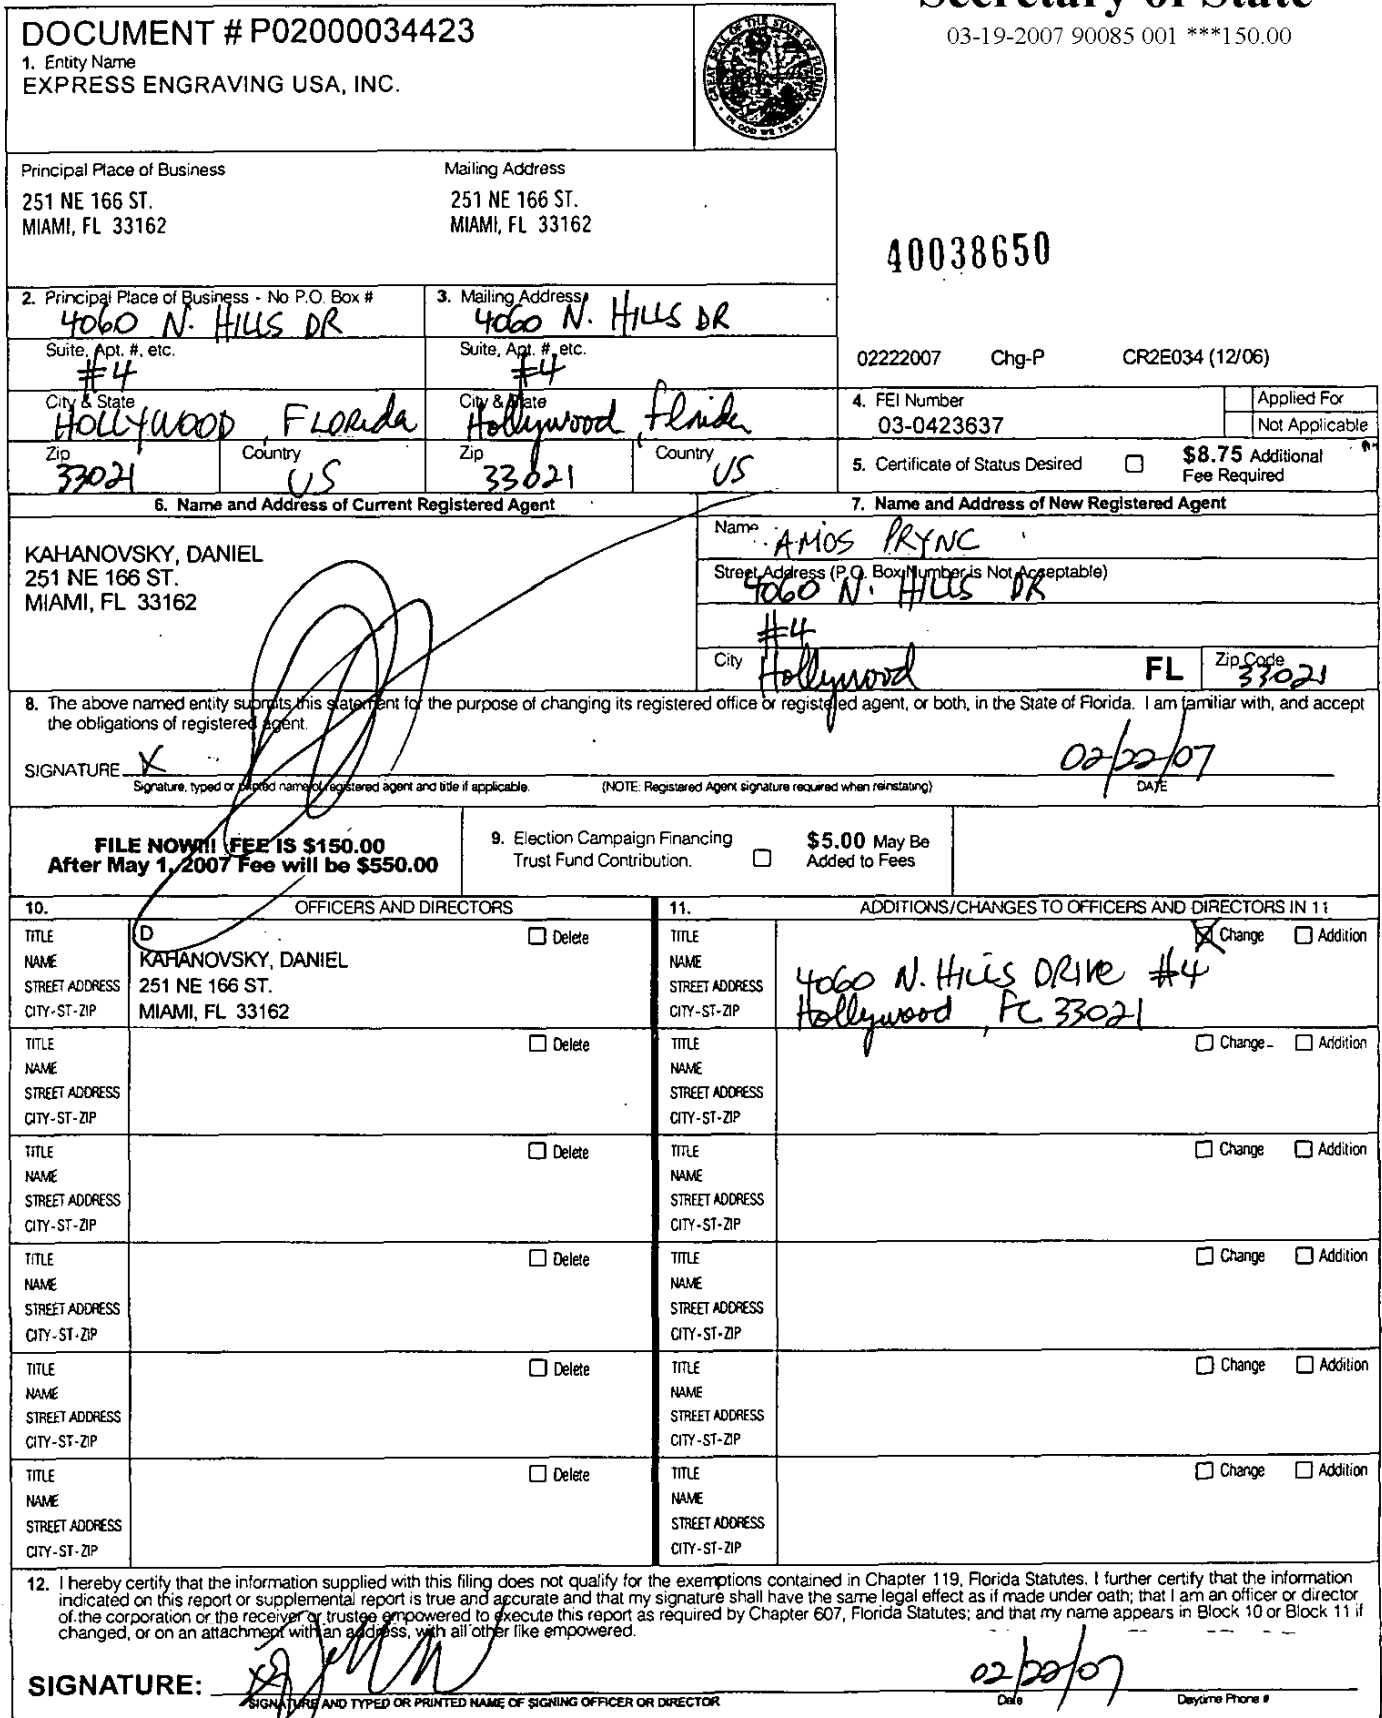 Secretary of State
03-19-2007 90085 001 ***150.00
DOCUMENT # P02000034423
1. Entity Name
EXPRESS ENGRAVING USA, INC.
GREAT SEAL OF THE STATE OF FLORIDA
IN GOD WE TRUST
Principal Place of Business
251 NE 166 ST.
MIAMI, FL 33162
Mailing Address
251 NE 166 ST.
MIAMI, FL 33162
40038650
2. Principal Place of Business - No P.O. Box #
4060 N. HILLS DR
3. Mailing Address
4060 N. HILLS DR
Suite, Apt. #, etc.
#4
Suite, Apt. #, etc.
#4
02222007 Chg-P CR2E034 (12/06)
City & State
HOLLYWOOD, FLORida
City & State
Hollywood, Florida
4. FEI Number
03-0423637
Applied For
Not Applicable
Zip
33021
Country
US
Zip
33021
Country
US
5. Certificate of Status Desired
$8.75 Additional
Fee Required
6. Name and Address of Current Registered Agent
KAHANOVSKY, DANIEL
251 NE 166 ST.
MIAMI, FL 33162
7. Name and Address of New Registered Agent
Name
AMOS PRYNC
Street Address (P.O. Box Number is Not Acceptable)
4060 N. HILLS DR
#4
City
Hollywood
FL
Zip Code
33021
8. The above named entity submits this statement for the purpose of changing its registered office or registered agent, or both, in the State of Florida. I am familiar with, and accept
the obligations of registered agent.
SIGNATURE X
02/22/07
Signature, typed or printed name of registered agent and title if applicable. (NOTE: Registered Agent signature required when reinstating) DATE
FILE NOW!!! FEE IS $150.00
After May 1, 2007 Fee will be $550.00
9. Election Campaign Financing
Trust Fund Contribution.
$5.00 May Be
Added to Fees
10. OFFICERS AND DIRECTORS
TITLE D Delete
NAME KAHANOVSKY, DANIEL
STREET ADDRESS 251 NE 166 ST.
CITY-ST-ZIP MIAMI, FL 33162
TITLE Delete
NAME
STREET ADDRESS
CITY-ST-ZIP
TITLE Delete
NAME
STREET ADDRESS
CITY-ST-ZIP
TITLE Delete
NAME
STREET ADDRESS
CITY-ST-ZIP
TITLE Delete
NAME
STREET ADDRESS
CITY-ST-ZIP
TITLE Delete
NAME
STREET ADDRESS
CITY-ST-ZIP
11. ADDITIONS/CHANGES TO OFFICERS AND DIRECTORS IN 11
TITLE X Change Addition
NAME
STREET ADDRESS 4060 N. HILLS DRIVE #4
CITY-ST-ZIP Hollywood, FL 33021
TITLE Change Addition
NAME
STREET ADDRESS
CITY-ST-ZIP
TITLE Change Addition
NAME
STREET ADDRESS
CITY-ST-ZIP
TITLE Change Addition
NAME
STREET ADDRESS
CITY-ST-ZIP
TITLE Change Addition
NAME
STREET ADDRESS
CITY-ST-ZIP
TITLE Change Addition
NAME
STREET ADDRESS
CITY-ST-ZIP
12. I hereby certify that the information supplied with this filing does not qualify for the exemptions contained in Chapter 119, Florida Statutes. I further certify that the information
indicated on this report or supplemental report is true and accurate and that my signature shall have the same legal effect as if made under oath; that I am an officer or director
of the corporation or the receiver or trustee empowered to execute this report as required by Chapter 607, Florida Statutes; and that my name appears in Block 10 or Block 11 if
changed, or on an attachment with an address, with all other like empowered.
SIGNATURE:
02/22/07
SIGNATURE AND TYPED OR PRINTED NAME OF SIGNING OFFICER OR DIRECTOR Date Daytime Phone #